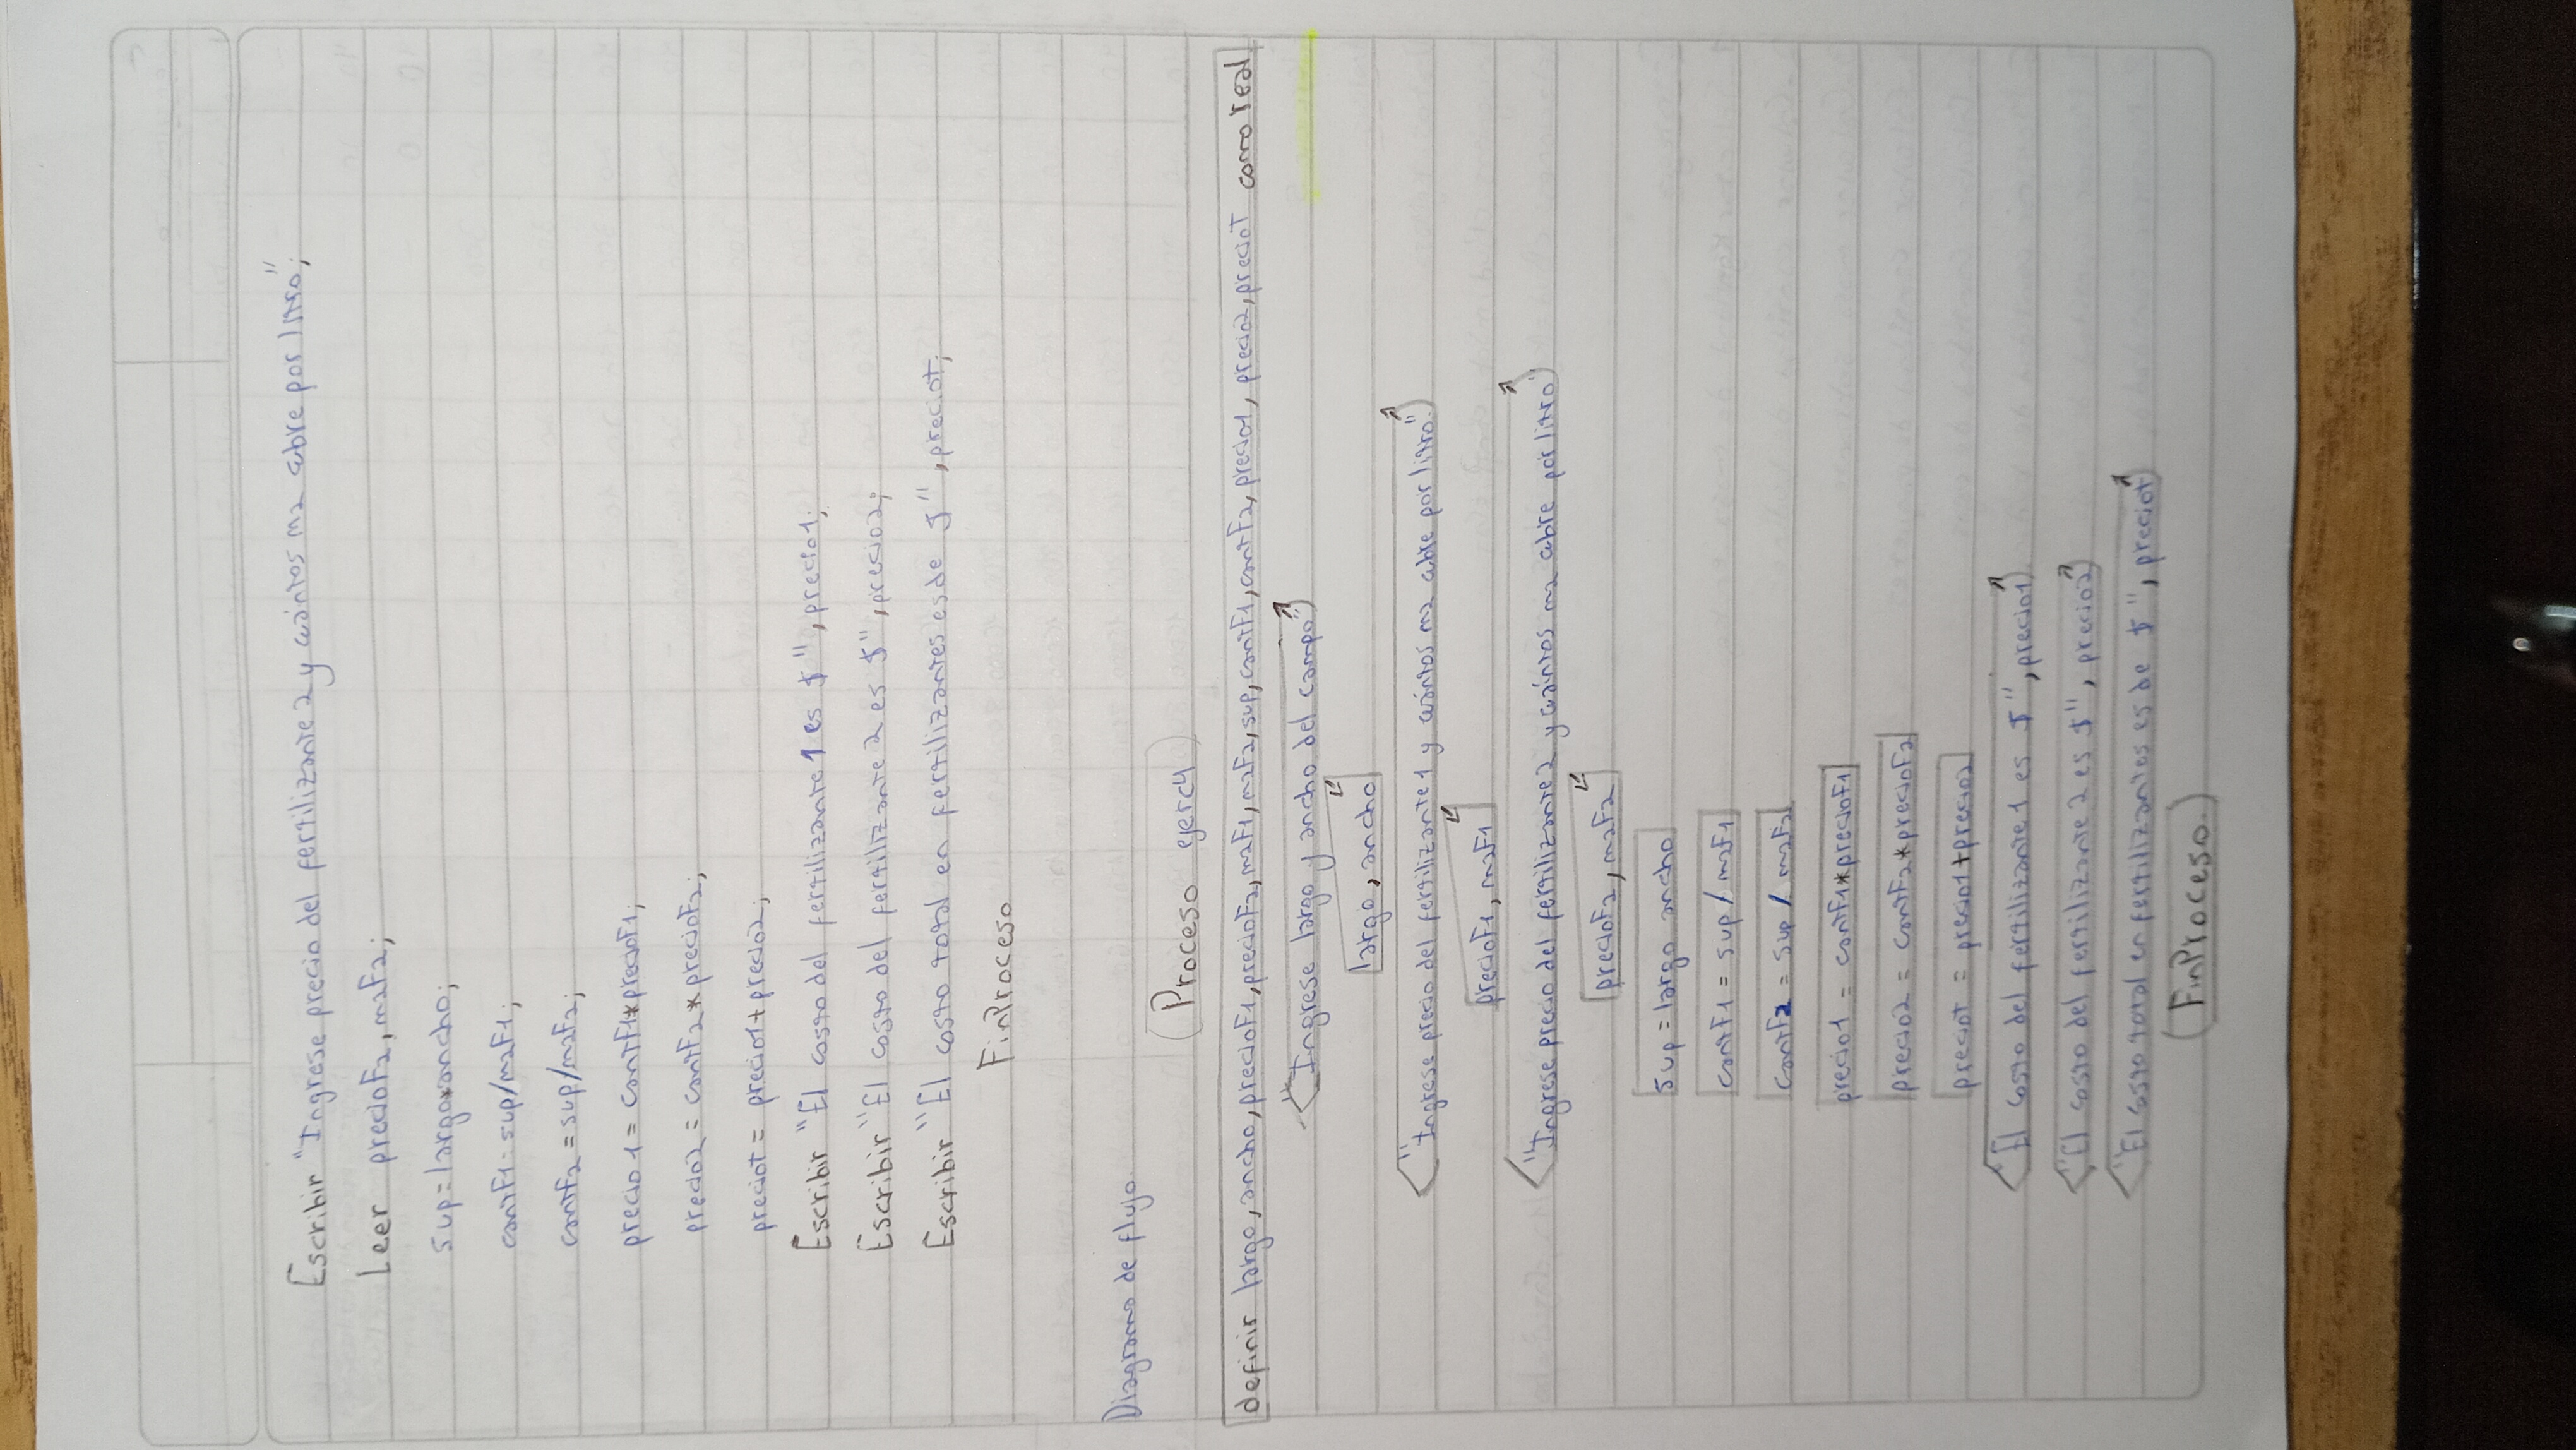 Escribir "Ingrese precio del fertilizante 2 y cuántos m2 cubre por litro";
Leer precioF2, m2F2;
sup=largo*ancho;
cantF1=sup/m2F1;
cantF2=sup/m2F2;
precio1=cantF1*precioF1;
precio2=cantF2*precioF2;
preciot=precio1+precio2;
Escribir "El costo del fertilizante 1 es $", precio1;
Escribir "El costo del fertilizante 2 es $", precio2;
Escribir "El costo total en fertilizantes es de $", preciot;
FinProceso
Diagrama de flujo.
Proceso ejerc4
definir largo, ancho, precioF1, precioF2, m2F1, m2F2, sup, cantF1, cantF2, precio1, precio2, precioT como real
"Ingrese largo y ancho del campo"
largo, ancho
"Ingrese precio del fertilizante 1 y cuántos m2 cubre por litro."
precioF1, m2F1
"Ingrese precio del fertilizante 2 y cuántos m2 cubre por litro"
precioF2, m2F2
sup=largo ancho
cantF1 = sup / m2F1
cantF2 = sup / m2F2
precio1 = cantF1*precioF1
precio2 = cantF2*precioF2
preciot = precio1+precio2
"El costo del fertilizante 1 es $", precio1
"El costo del fertilizante 2 es $", precio2
"El costo total en fertilizantes es de $", preciot
FinProceso.